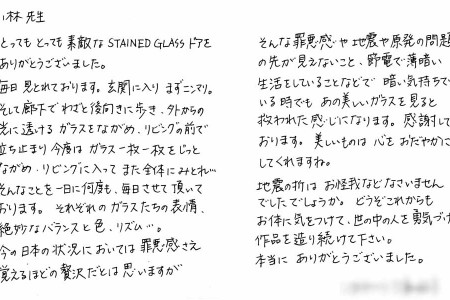 小林 先生
とってもとっても素敵な STAINED GLASS ドアを
ありがとうございました。
毎日 見とれております。玄関に入り まずニンマリ。
そして廊下で わざと後向きに歩き、外からの
光に透ける ガラスをながめ、リビングの前で
立ち止まり 今度は ガラス一枚一枚をじっと
ながめ、リビングに入って また全体にみとれ…
そんなことを一日に何度も、毎日させて頂いて
おります。 それぞれの ガラスたちの表情、
絶妙なバランスと 色、リズム…。
今の日本の状況においては 罪悪感さえ
覚えるほどの 贅沢だとは 思いますが
そんな罪悪感や 地震や 原発の問題
の先が見えないこと、節電で 薄暗い
生活をしていることなどで 暗い気持ちで
いる時でも あの美しいガラスを見ると
救われた感じになります。感謝して
おります。美しいものは 心を おだやかに
してくれますね。
地震の折は お怪我などなさいません
でしたでしょうか。 どうぞこれからも
お体に気をつけて、世の中の人を 勇気づけ
作品を造り続けて下さい。
本当に ありがとうございました。